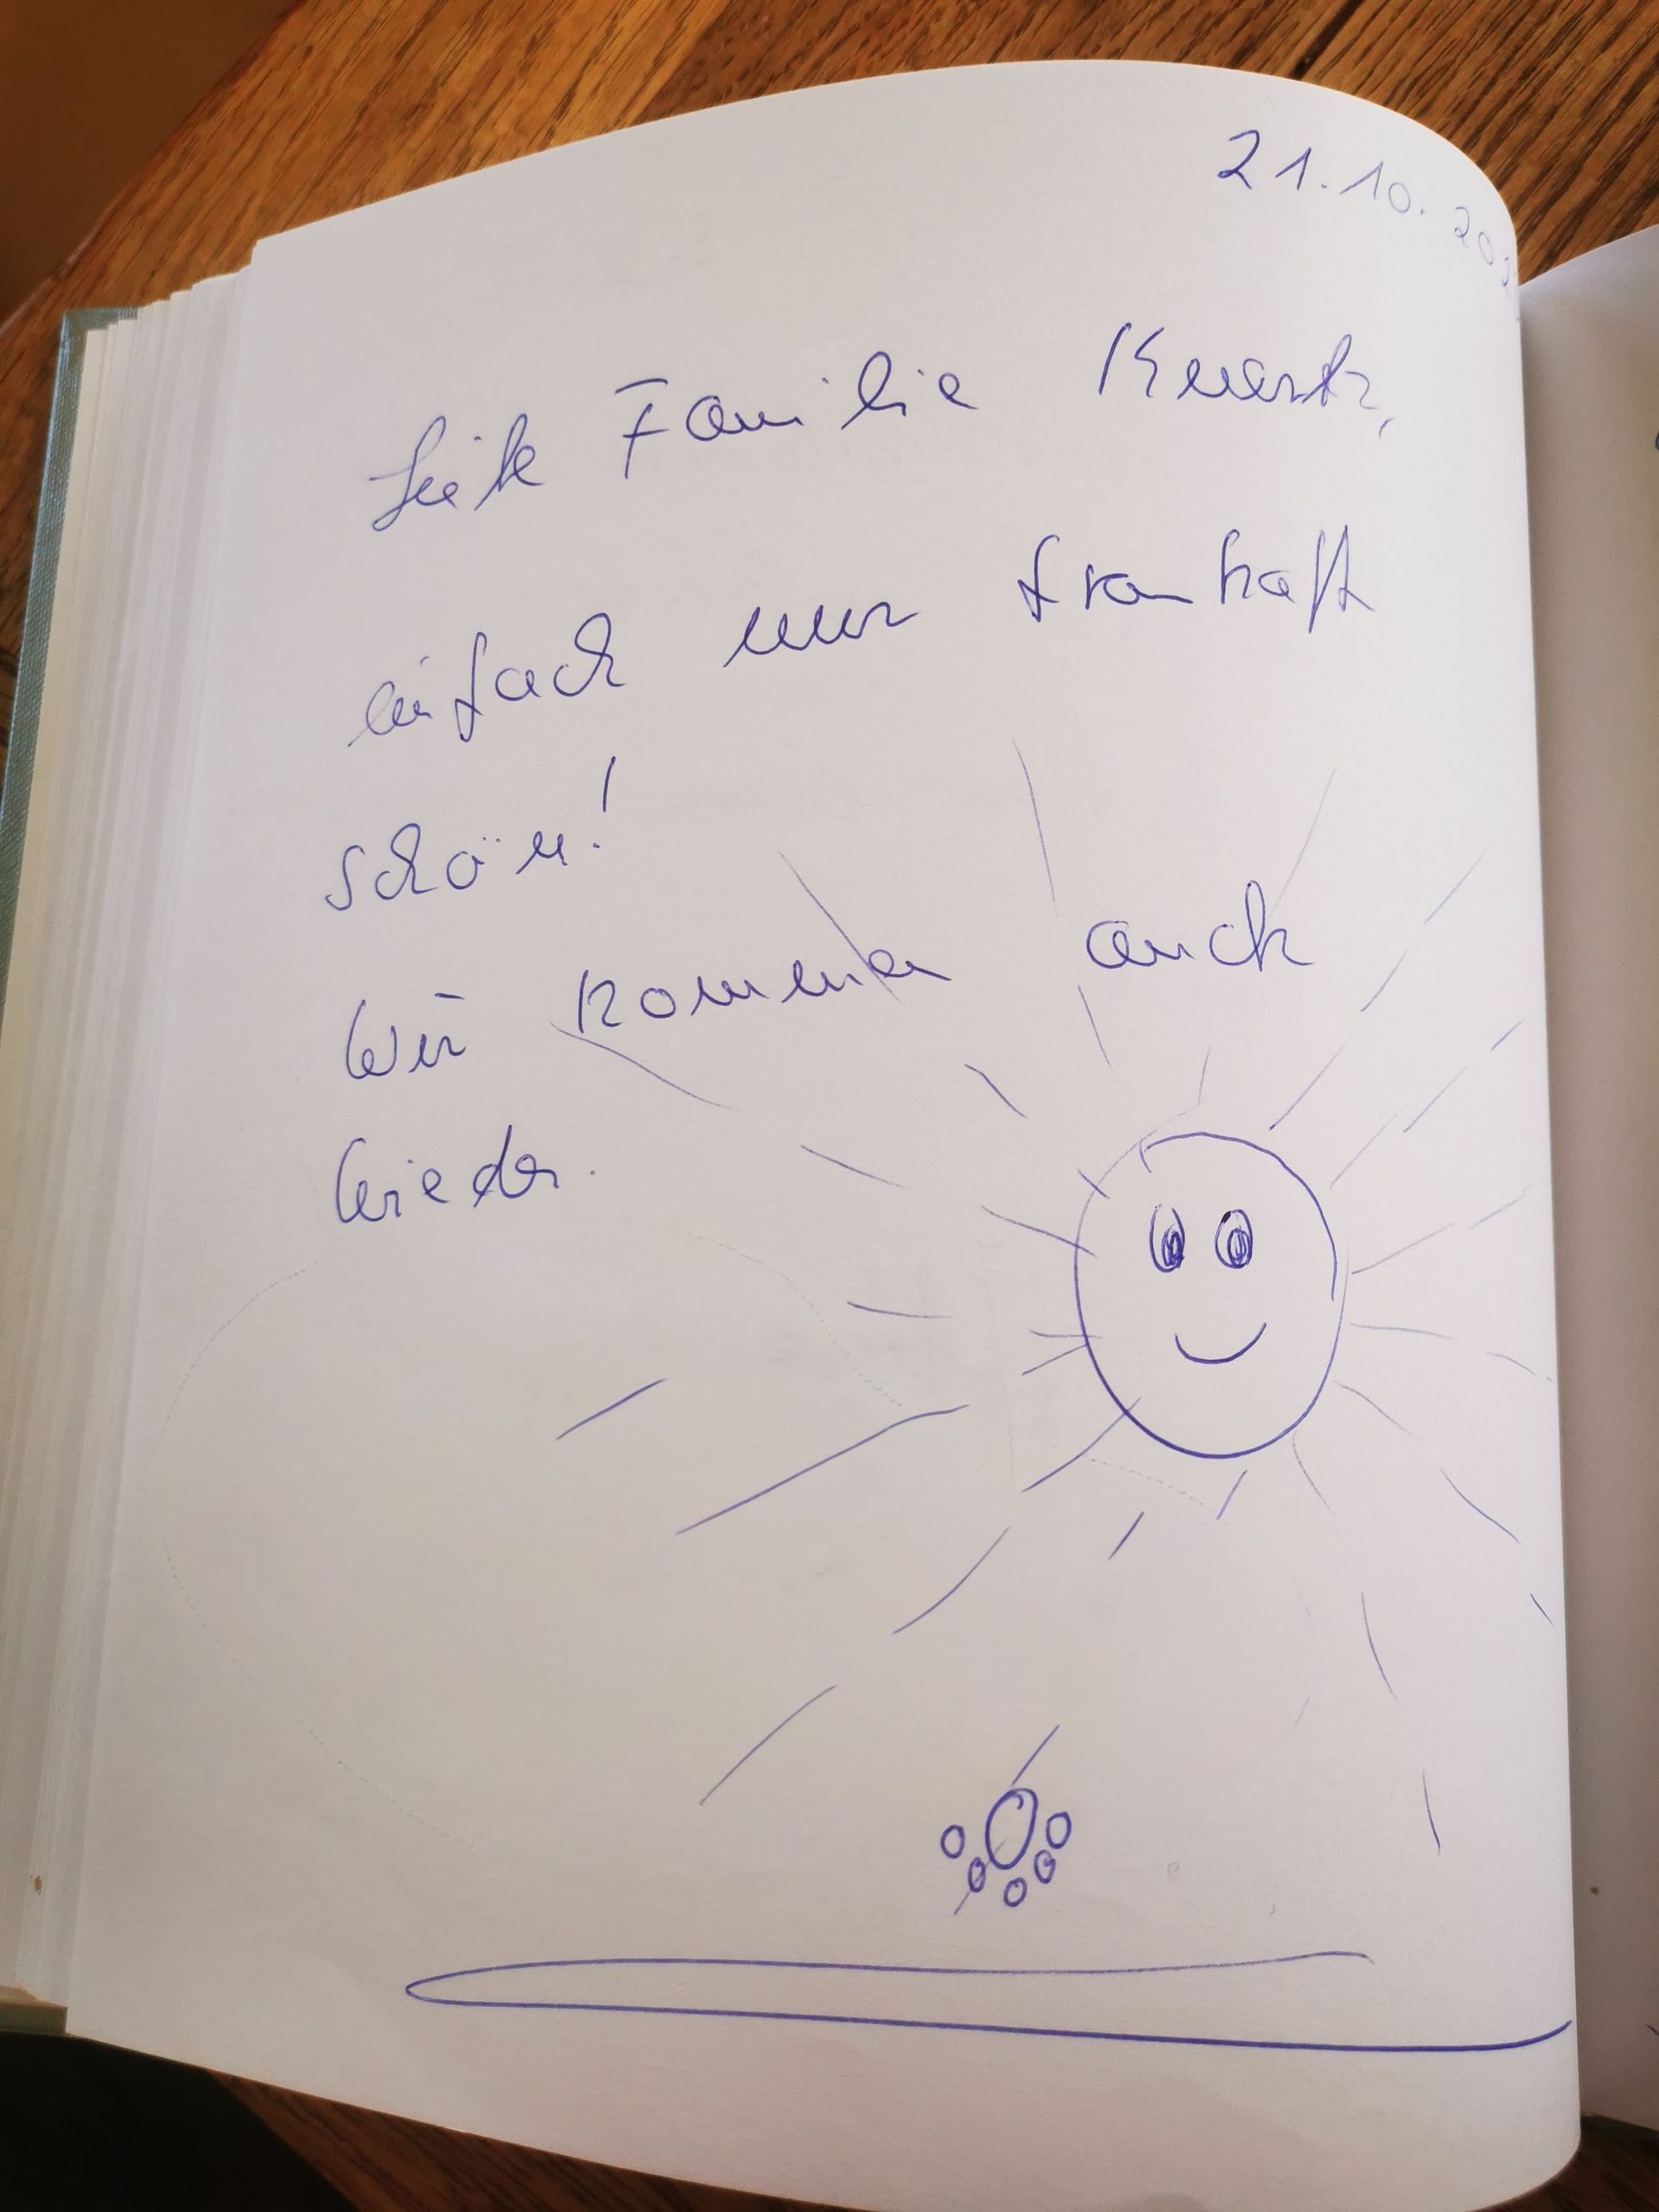 21.10.202
Familie
einfach nur traumhaft
schön!
Wir kommen auch
wieder.